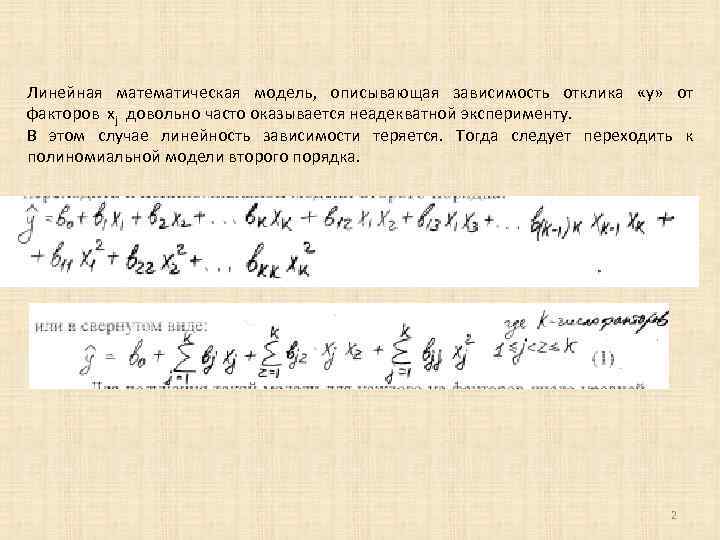 Линейная математическая модель, описывающая зависимость отклика «y» от
факторов xj довольно часто оказывается неадекватной эксперименту.
В этом случае линейность зависимости теряется. Тогда следует переходить к
полиномиальной модели второго порядка.
ŷ = b₀ + b₁x₁ + b₂x₂ + ... bₖxₖ + b₁₂x₁x₂ + b₁₃x₁x₃ + ... b₍ₖ₋₁₎ₖ xₖ₋₁ xₖ +
+ b₁₁ x₁² + b₂₂ x₂² + ... bₖₖ xₖ²
или в свернутом виде:
где K-число факторов
ŷ = b₀ + Σ(j=1..K) bj xj + Σ(z=1..K) bjz · xj xz + Σ(j=1..K) bjj xj² 1≤j<z≤K (1)
2